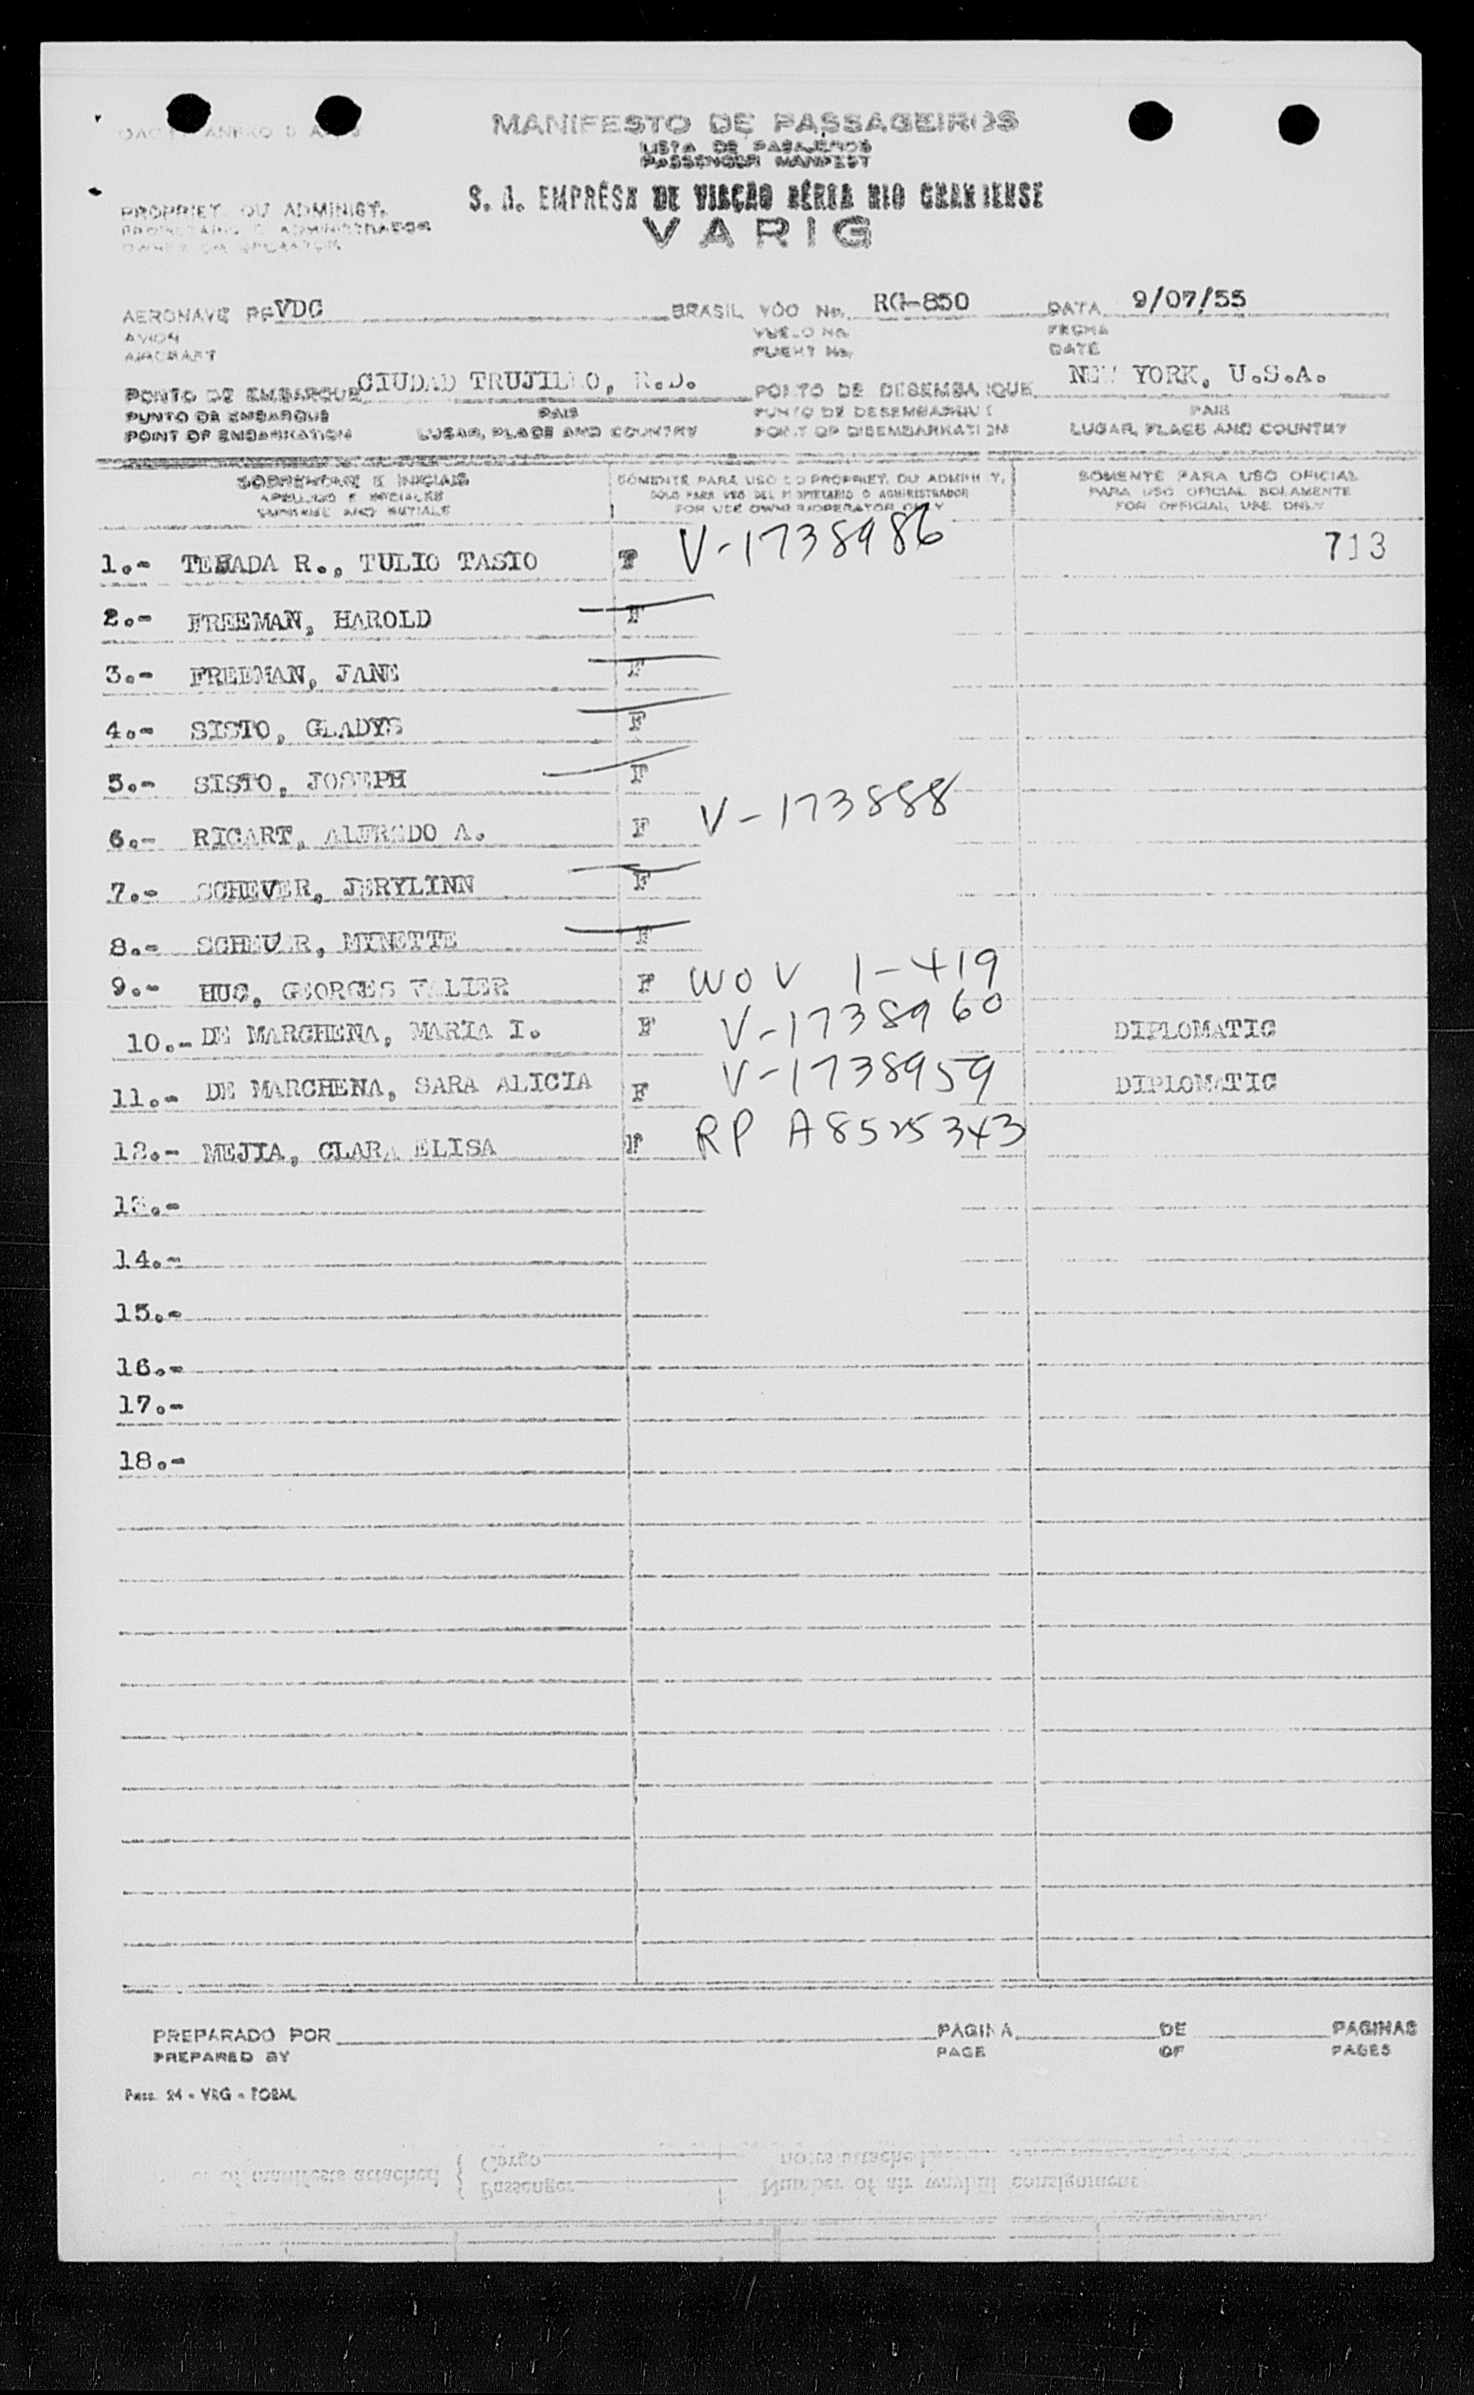 MANIFESTO DE PASSAGEIROS
LISTA DE PASAJEROS
PASSENGER MANIFEST
S. A. EMPRÊSA DE VIAÇÃO AÉREA RIO GRANDENSE
VARIG
PROPRIET. OU ADMINIST.
PROPIETARIO O ADMINISTRADOR
OWNER OR OPERATOR
AERONAVE PP VDC BRASIL VÔO No. RG-850 DATA 9/07/55
AVION VUELO No. FECHA
AIRCRAFT FLIGHT No. DATE
PONTO DE EMBARQUE CIUDAD TRUJILLO, R.D. PONTO DE DESEMBARQUE NEW YORK, U.S.A.
PUNTO DE EMBARQUE PAIS PUNTO DE DESEMBARQUE PAIS
POINT OF EMBARKATION LUGAR, PLACE AND COUNTRY POINT OF DISEMBARKATION LUGAR, PLACE AND COUNTRY
SOBRENOME E INICIAIS SÓMENTE PARA USO DO PROPRIET. OU ADMINIST. SOMENTE PARA USO OFICIAL
APELLIDO E INICIALES SOLO PARA USO DEL PROPIETARIO O ADMINISTRADOR PARA USO OFICIAL SOLAMENTE
SURNAME AND INITIALS FOR USE OWNER/OPERATOR ONLY FOR OFFICIAL USE ONLY
1.- TEJADA R., TULIO TASIO F V-1738986 713
2.- FREEMAN, HAROLD F
3.- FREEMAN, JANE F
4.- SISTO, GLADYS F
5.- SISTO, JOSEPH F
6.- RICART, ALFREDO A. F V-173888
7.- SCHEVER, JERYLINN F
8.- SCHEUER, MYNETTE F
9.- HUC, GEORGES VALIER F WOV 1-419
10.- DE MARCHENA, MARIA I. F V-1738960 DIPLOMATIC
11.- DE MARCHENA, SARA ALICIA F V-1738959 DIPLOMATIC
12.- MEJIA, CLARA ELISA F RP A8525343
13.-
14.-
15.-
16.-
17.-
18.-
PREPARADO POR PAGINA DE PAGINAS
PREPARED BY PAGE OF PAGES
Pass. 24 - VRG - TOBAL